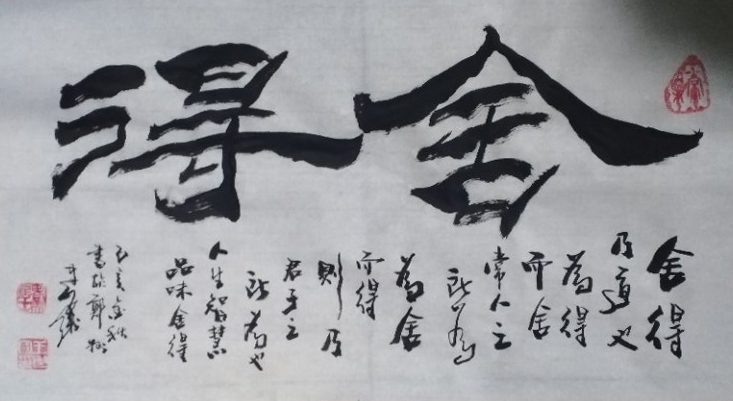 舍得
舍得
乃道也
為得
而舍
常人之
所為
為舍
而得
則乃
君子之
所為也
人生智慧
品味舍得
己亥金秋
書於鄭州